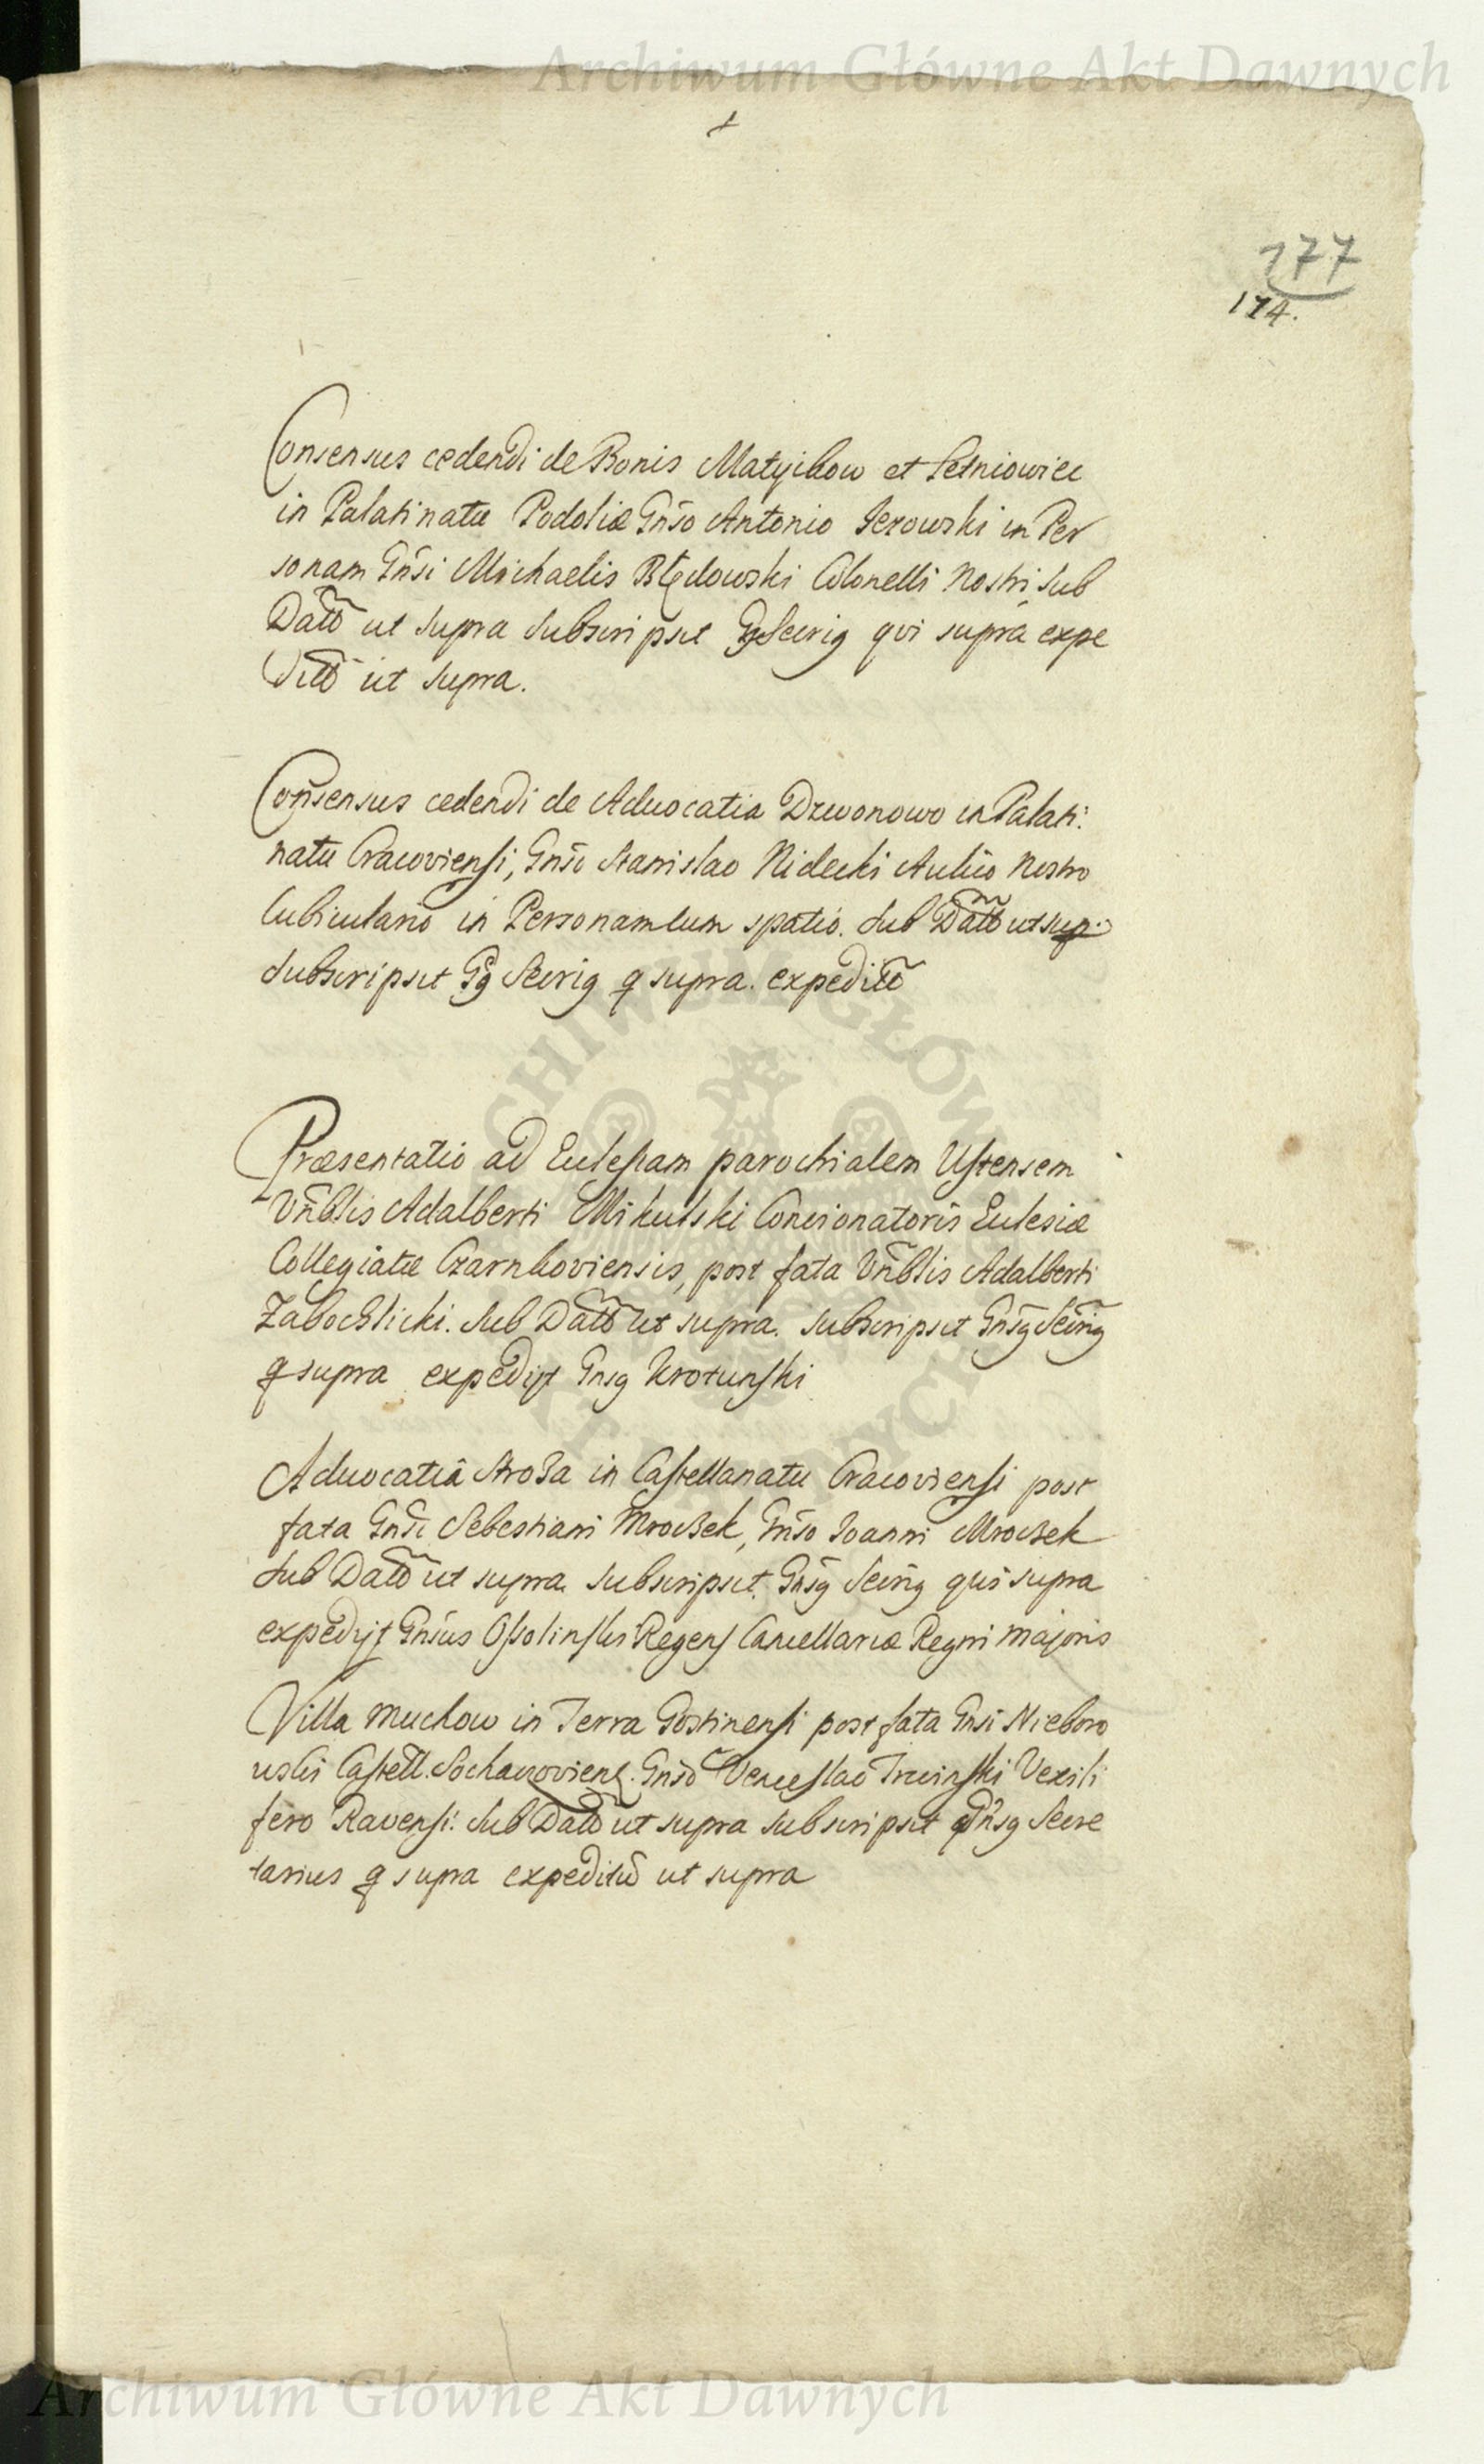 Archiwum Główne Akt Dawnych
177
174.
Consensus cedendi de Bonis Matyikow et Letniowiec
in Palatinatu Podoliæ Gñso Antonio Jezowski in Per
sonam Gñsi Michaelis Błędowski Colonelli Nostri, sub
Datto ut supra subscripsit Secrig qvi supra expe
ditto ut supra.
Consensus cedendi de Advocatia Dzwonowo in Palati:
natu Cracoviensi, Gñso Stanislao Nidecki Aulico Nostro
Cubiculario in Personam eum spatio. sub Datto ut sup:
subscripsit Gg Secrig q supra. expeditio
Præsentatio ad Eclesiam parochialem Ustensem
Vñblis Adalberti Mikulski Concionatoris Eclesiæ
Collegiatæ Czarnkoviensis, post fata Vñblis Adalberti
Zabocklicki. sub Datto ut supra. subscripsit Gñsg Secrig
q supra expedijt Gnsg Krotunski
Advocatia Stroza in Castellanatu Cracoviensi post
fata Gñsi Sebestiani Mroczek, Gñso Joanni Mroczek
sub Datto ut supra subscripsit. Gñsg Secrig qui supra
expedijt Gñsus Ossolinski Regens Cancellariæ Regni Majoris
Villa Muchow in Terra Gostinensi post fata Gñsi Nieboro
wski Castell. Sochacoviens. Gñso Venceslao Trcinski Vexili
fero Ravensi: sub Datto ut supra subscripsit Gñsg Secre
tarius q supra expeditio ut supra
Archiwum Główne Akt Dawnych